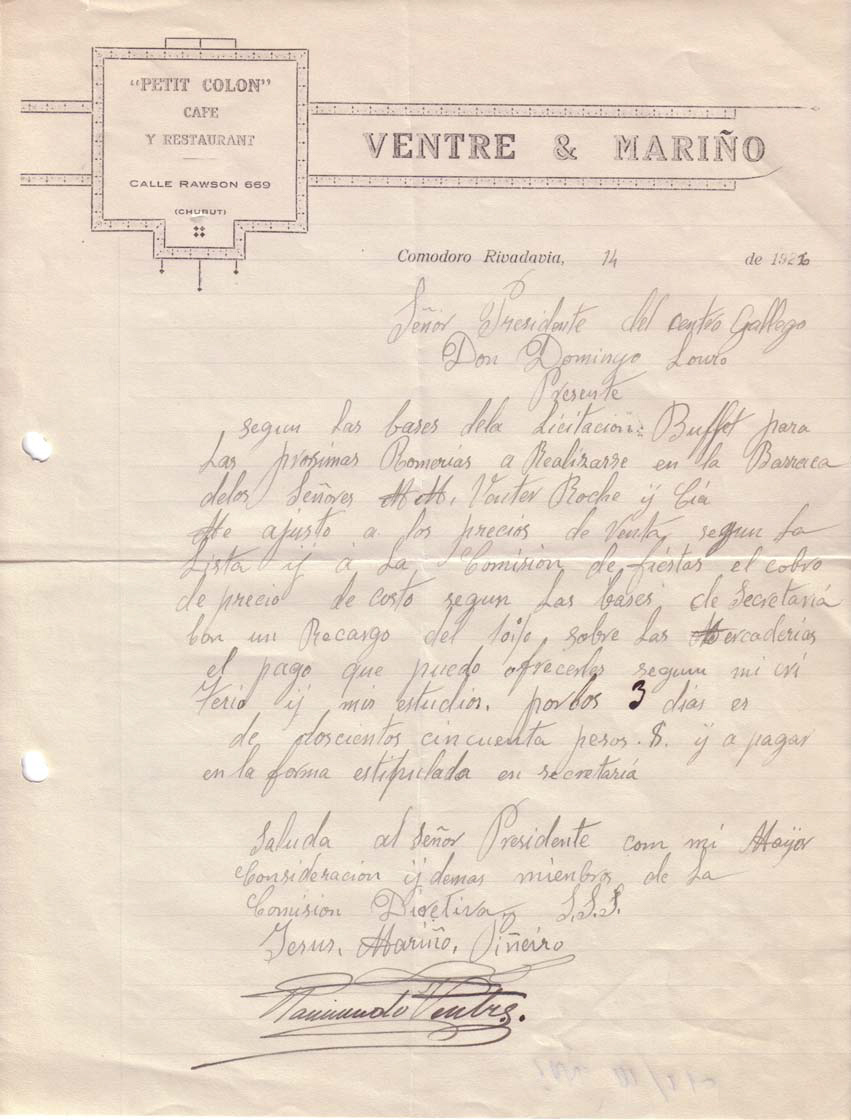 "PETIT COLON"
CAFE
Y RESTAURANT
CALLE RAWSON 669
(CHUBUT)
VENTRE & MARIÑO
Comodoro Rivadavia, 14 de 192
Señor Presidente del centro Gallego
Don Domingo Louro
Presente
segun las bases dela Licitacion: Buffet para
Las prosimas Romerias a Realizarse en la Barraca
delos Señores M M, Venter Roche ÿ Cia
Me ajusto a los precios de Venta segun La
Lista ÿ á La Comision de fiestas el cobro
de precio de costo segun las bases de Secretaria
Con un Recargo del 10% sobre las Mercaderias
el pago que puedo ofrecerles segun mi cri
terio ÿ mis estudios. por los 3 dias es
de doscientos cincuenta pesos. $. ÿ a pagar
en la forma estipulada en secretaria
Saluda al Señor Presidente com mi Mayor
Consideracion ÿ demas miembros de La
Comision Diretiva S.S.S.
Jesus, Mariño, Piñeiro
Raimundo Ventre.